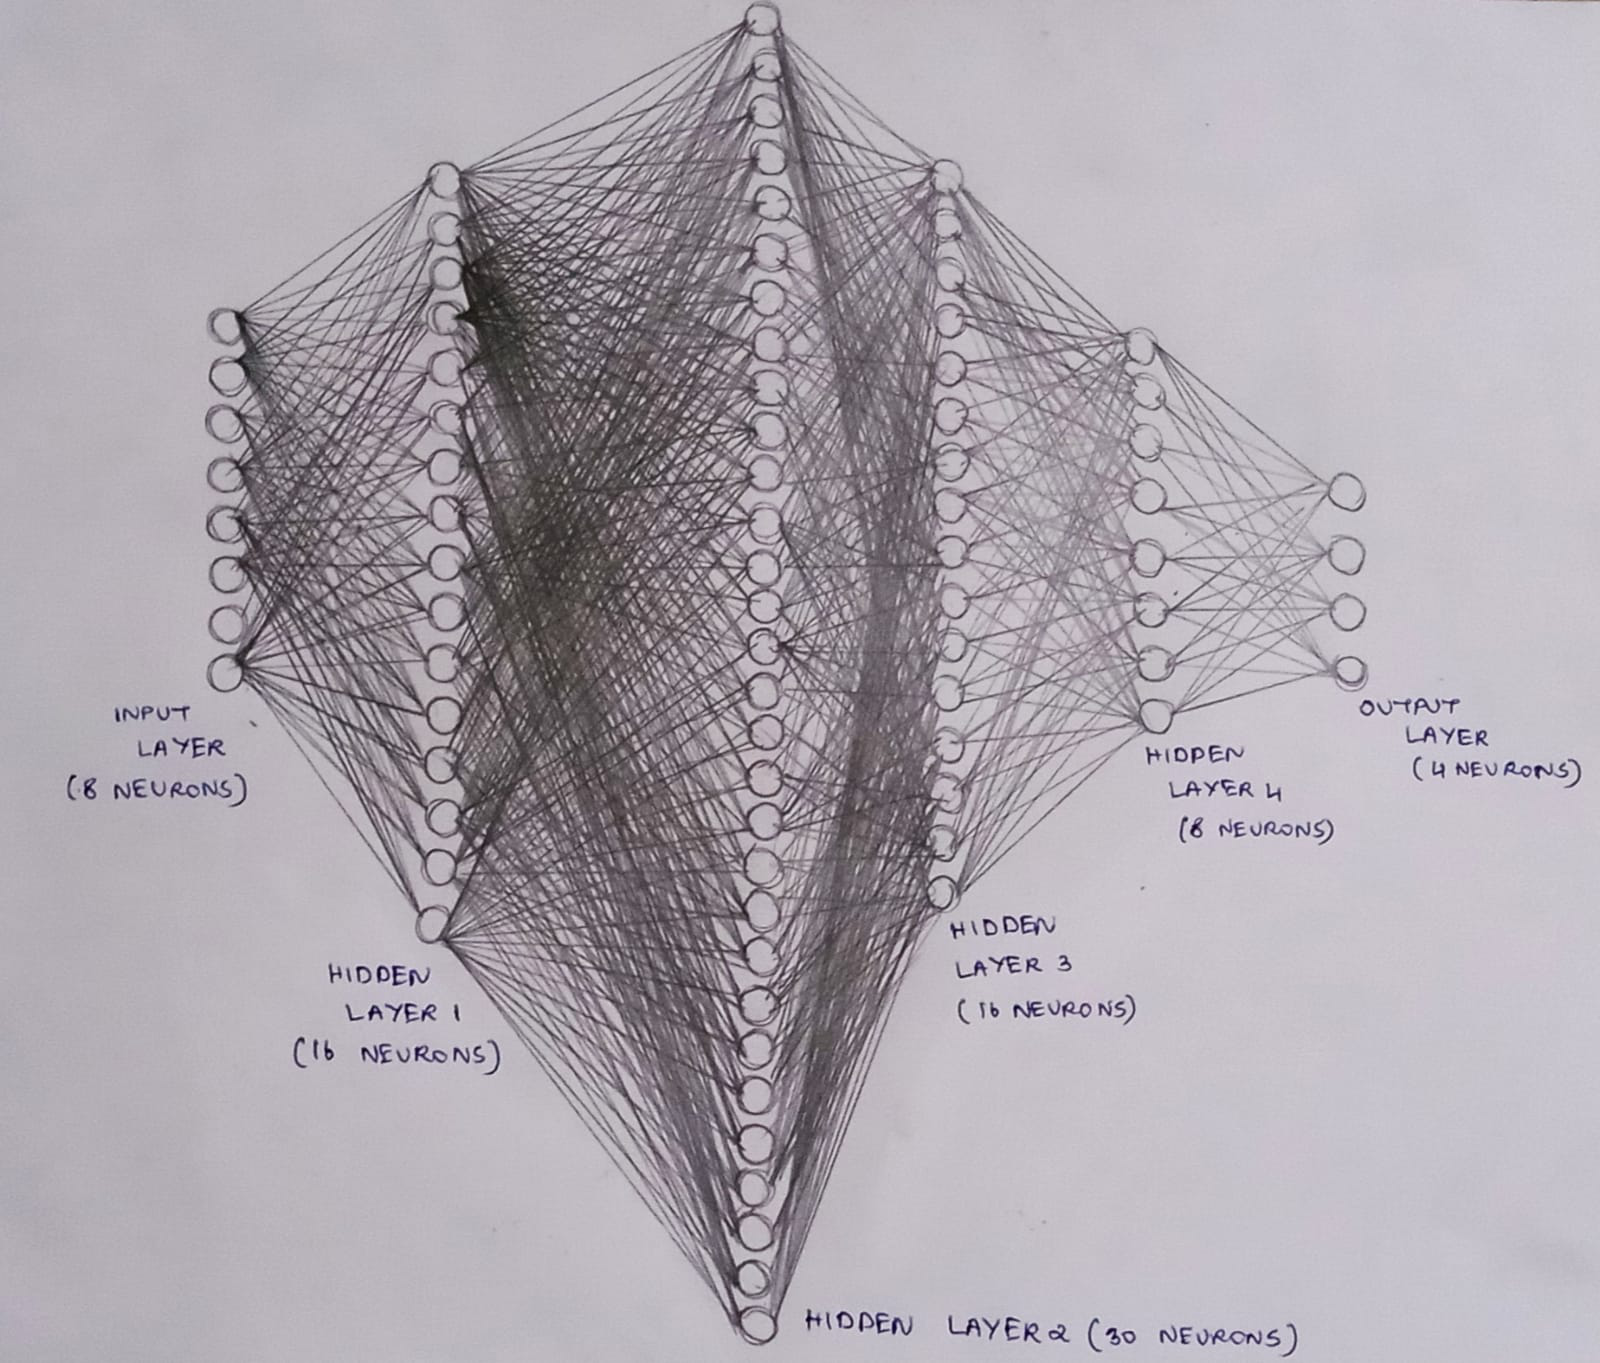 INPUT
LAYER
(8 NEURONS)
HIDDEN
LAYER 1
(16 NEURONS)
HIDDEN LAYER 2 (30 NEURONS)
HIDDEN
LAYER 3
(16 NEURONS)
HIDDEN
LAYER 4
(8 NEURONS)
OUTPUT
LAYER
(4 NEURONS)